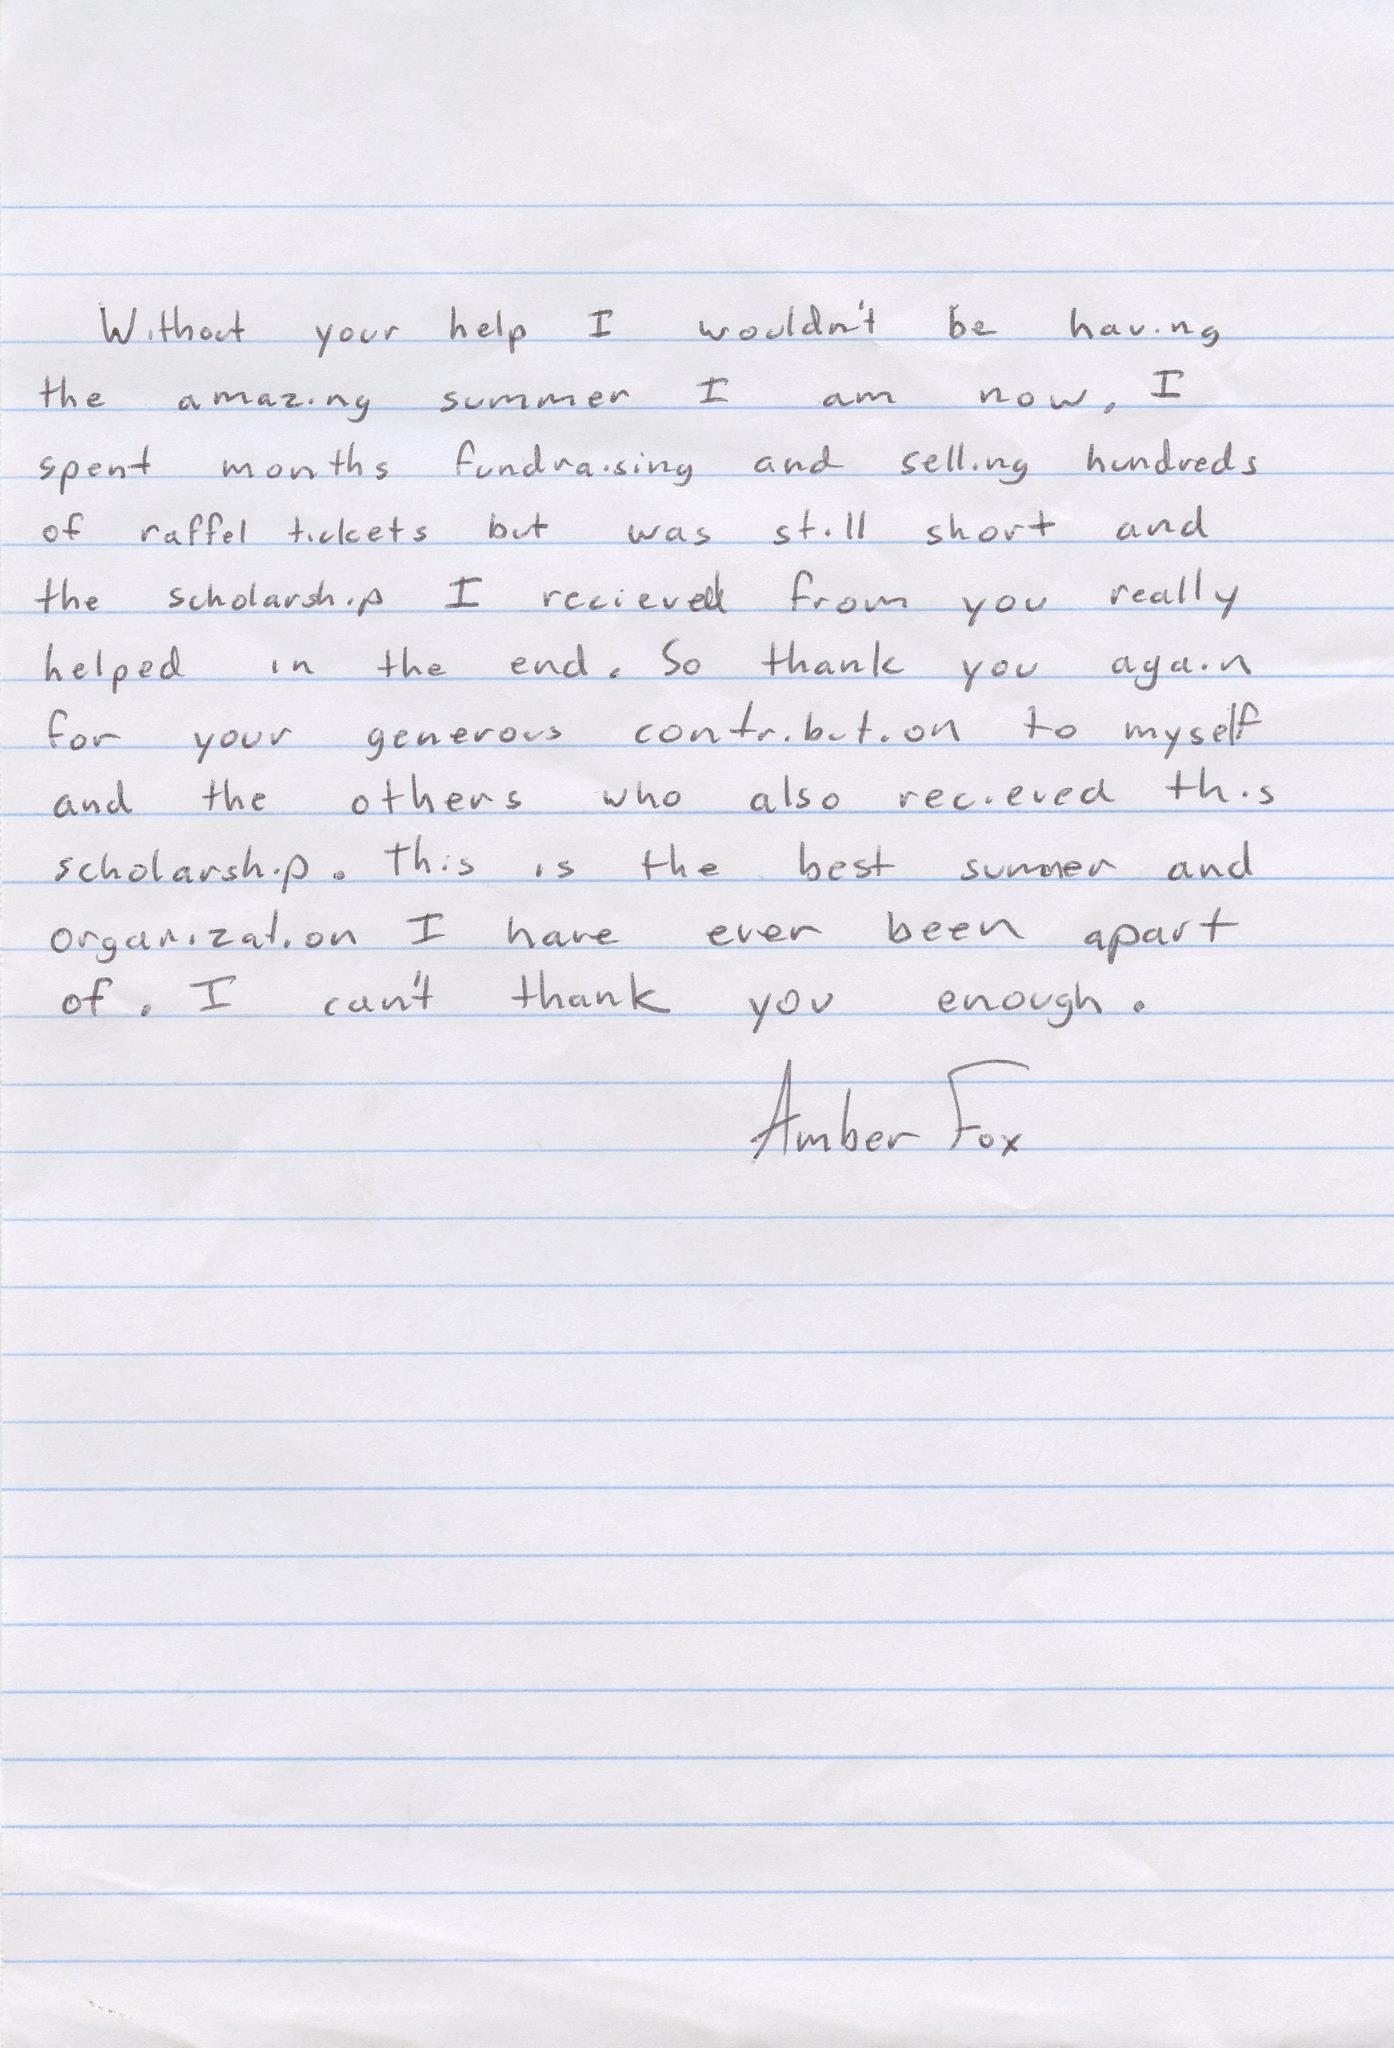 Without your help I wouldn't be having
the amazing summer I am now. I
spent months fundraising and selling hundreds
of raffel tickets but was still short and
the scholarship I recieved from you really
helped in the end. So thank you again
for your generous contribution to myself
and the others who also recieved this
scholarship. This is the best summer and
organization I have ever been apart
of. I can't thank you enough.
Amber Fox